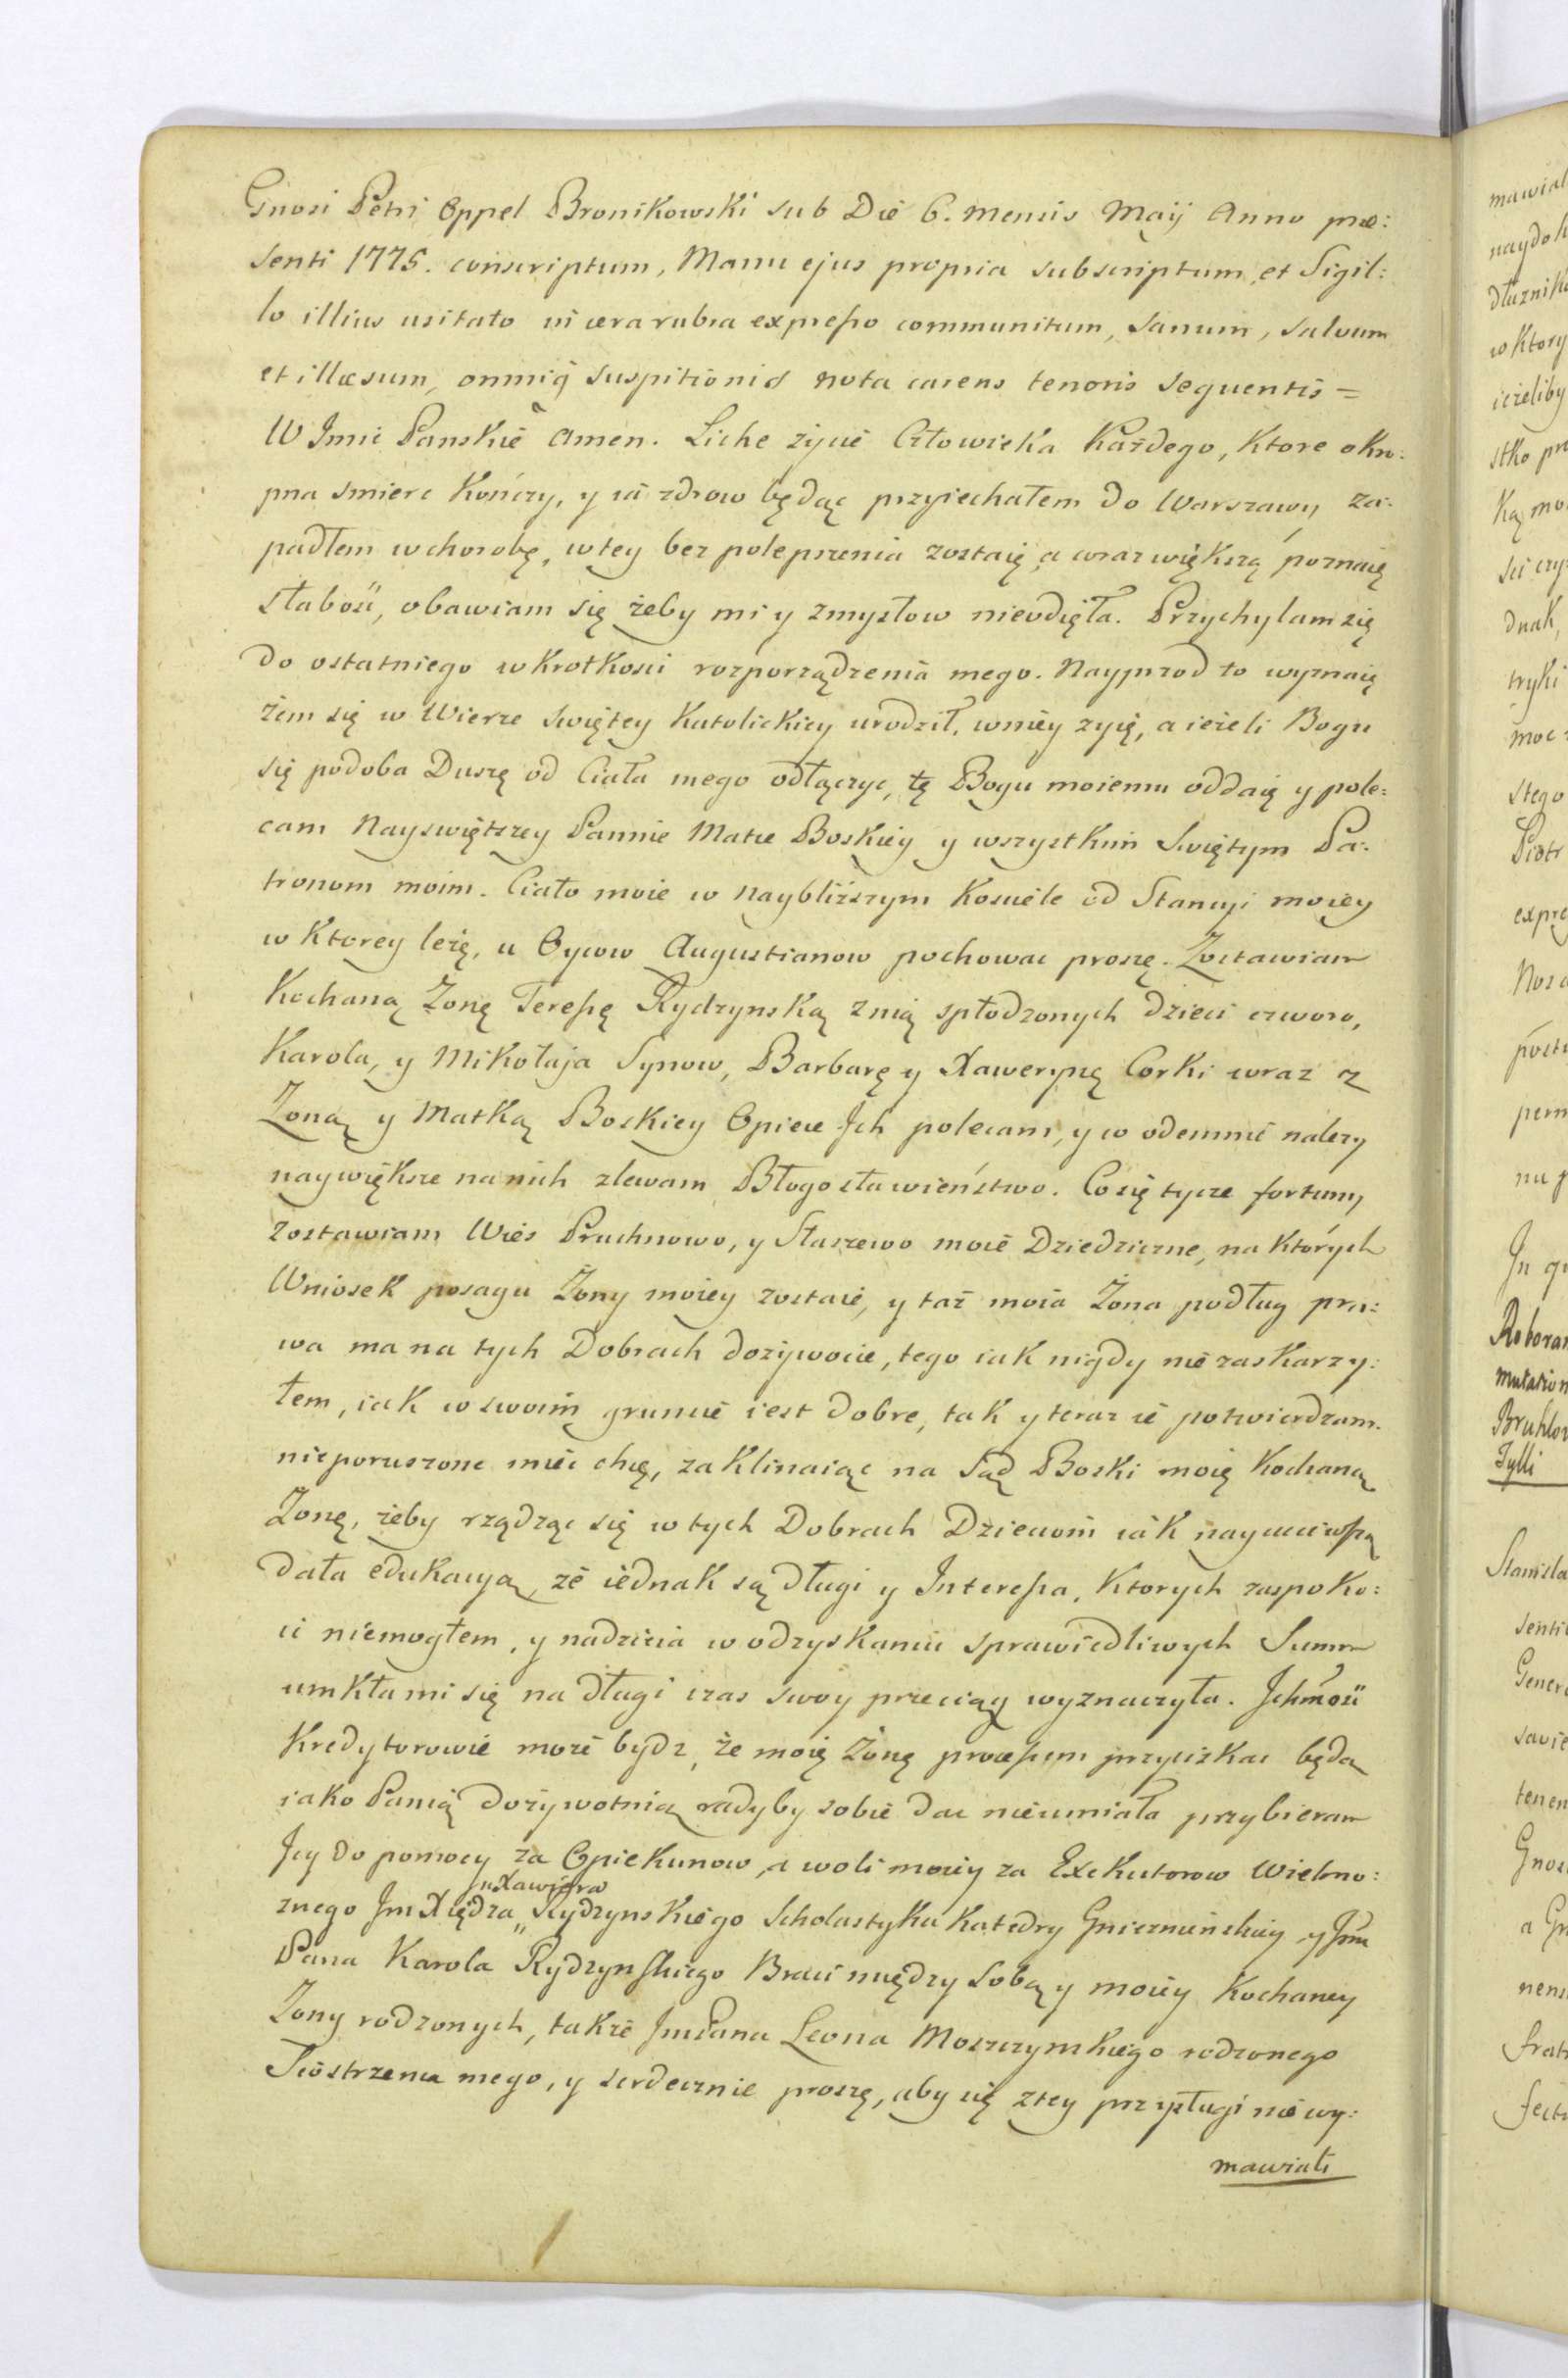 Gnosi Petri Oppel Bronikowski sub Die 6. mensis Maij Anno præ:
senti 1775. conscriptum, Manu ejus propria subscriptum, et Sigil:
lo illius usitato in cera rubra expresso communitum, sanum, salvum
et illæsum, omniq̃ suspitionis nota carens tenoris sequentis =
W Imie Panskie Amen. Liche życie Człowieka Każdego, Ktore okru:
pna smierc Kończy, y ia zdrow będąc przyiechałem do Warszawy za:
padłem w chorobę, w tey bez polepszenia zostaię, a coraz większą poznaię
słabość, obawiam się żeby mi y zmysłow nieodięła. Przychylam się
do ostatniego w krotkosci rozporządzenia mego. Nayprzod to wyznaię
żem się w Wierze Swiętey Katolickiey urodził, w niey zyię, a ieżeli Bogu
się podoba Duszę od Ciała mego odłączyc, tę Bogu moiemu oddaię y pole:
cam Nayswiętszey Pannie Matce Boskiey y wszystkim Swiętym Pa:
tronom moim. Ciało moie w naybliższym Kosciele od Stancyi moiey
w Ktorey leżę, u Oycow Augustianow pochowac proszę. Zostawiam
Kochaną Zonę Teressę Rydzynską z nią spłodzonych dzieci czworo,
Karola, y Mikołaja Synow, Barbarę y Xawerynę Corki wraz z
Zoną y Matką Boskiey Opiece Jch polecam, y co odemnie nalezy
naywiększe na nich zlewam Błogosławieństwo. Co się tycze fortuny
zostawiam Wies Pruchnowo, y Staszewo moie Dziedziczne, na Ktorych
Wniosek posagu Żony moiey zostaie, y taż moia Żona podług pra:
wa ma na tych Dobrach dożywocie, tego iak nigdy nie zaskarzy:
łem, iak w swoim gruncie iest dobre, tak y teraz ie potwierdzam.
nieporuszone miec chcę, zaklinaiąc na Sąd Boski moię Kochaną
Zonę, żeby rządząc się w tych Dobrach Dzieciom iak nayucciwszą
dała edukacyą, że iednak są długi y Interessa, Ktorych zaspoko:
ic niemogłem, y nadzieia w odzyskaniu sprawiedliwych Summ
umkła mi się na długi czas swoy przeciąg wyznaczyła. Jchmość
Kredytorowie może bydz, że moię Żonę processem przyciskac będą
iako Panią dożywotnią radyby sobie dac nieumiała przybieram
Jey do pomocy za Opiekunow, a woli moiey za Exekutorow Wielmo:
znego Jm Xiędza „ Xawiera Rydzynskiego Scholastyka Katedry Gniezninskiey y Jm
Pana Karola Rydzynskiego Braci między sobą y moiey Kochaney
Zony rodzonych, także Jm Pana Leona Moszczynskiego rodzonego
Siostrzenca mego, y serdecznie proszę, aby się z tey przysługi nie wy:
mawiali